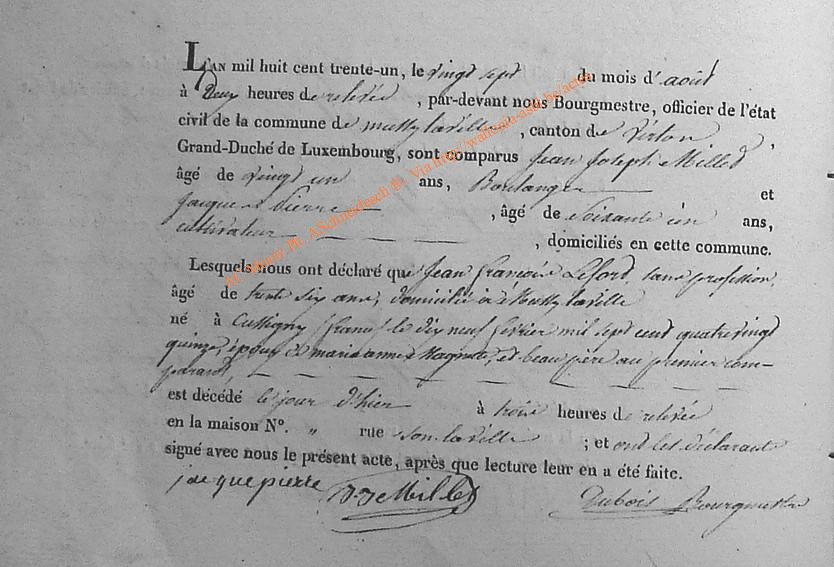 L'AN mil huit cent trente-un, le vingt sept du mois d'août
à Deux heures de relevée, par-devant nous Bourgmestre, officier de l'état
civil de la commune de mussy la ville, canton de Virton,
Grand-Duché de Luxembourg, sont comparus Jean Joseph Milled
âgé de vingt un ans, Boulanger et
Jacques Pierre, âgé de soixante un ans,
cultivateur, domiciliés en cette commune.
Lesquels nous ont déclaré que Jean françois Leford, sans profession,
âgé de trente six ans, domicilié à Mussy laville
né à Cussigny (france) le dix neuf février mil sept cent quatre vingt
quinze, époux de marie anne, et beau père au premier com-
parant,
est décédé le jour d'hier à trois heures de relevée
en la maison N°. " rue son la ville ; et ont les déclarants
signé avec nous le présent acte, après que lecture leur en a été faite.
jacque pierre J J Milled Dubois Bourgmestre